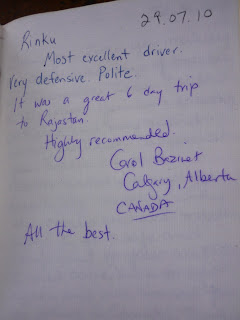 29.07.10
Rinku
Most excellent driver.
Very defensive. Polite.
It was a great 6 day trip
to Rajastan.
Highly recommended.
Carol Bazinet
Calgary, Alberta
CANADA
All the best.